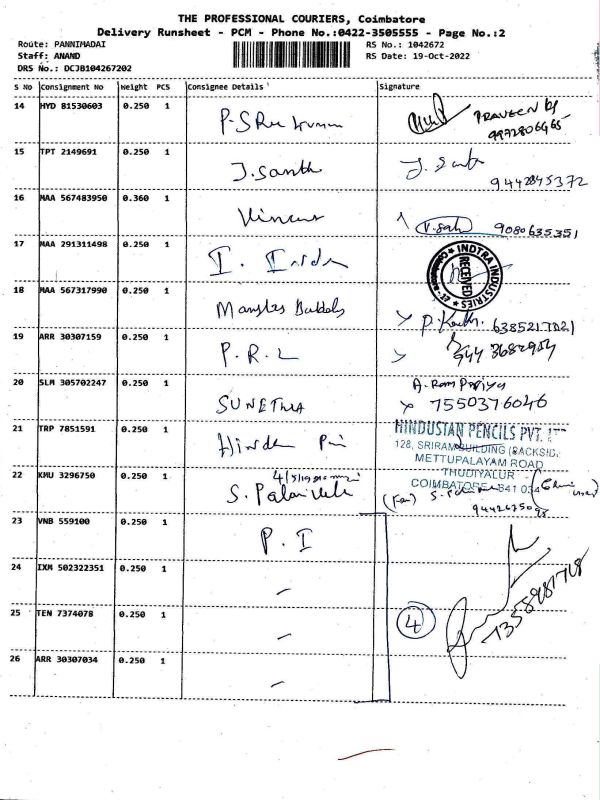 THE PROFESSIONAL COURIERS, Coimbatore
Delivery Runsheet - PCM - Phone No.:0422-3505555 - Page No.:2
Route: PANNIMADAI
RS No.: 1042672
Staff: ANAND
RS Date: 19-Oct-2022
DRS No.: DCJB104267202
S No Consignment No Weight PCS Consignee Details Signature
14 HYD 81530603 0.250 1 P-SRee kumar PRAVEEN
15 TPT 2149691 0.250 1 J.Santh
9442845372
16 MAA 567483950 0.360 1 9080635351
17 MAA 291311498 0.250 1 I.
INDTRA INDUSTRIES
RECEIVED
18 MAA 567317990 0.250 1 6385217021
19 ARR 30307159 0.250 1 P.R.L
20 SLM 305702247 0.250 1 SUNETHA A. Ram Priya
7550376046
21 TRP 7851591 0.250 1
HINDUSTAN PENCILS PVT.
128, SRIRAM BUILDING (BACKSIDE
METTUPALAYAM ROAD
THUDIYALUR
COIMBATORE - 641 034
22 KMU 3296750 0.250 1 S. Palanivelu
23 VNB 559100 0.250 1 P. I
24 IXM 502322351 0.250 1
25 TEN 7374078 0.250 1 4
26 ARR 30307034 0.250 1